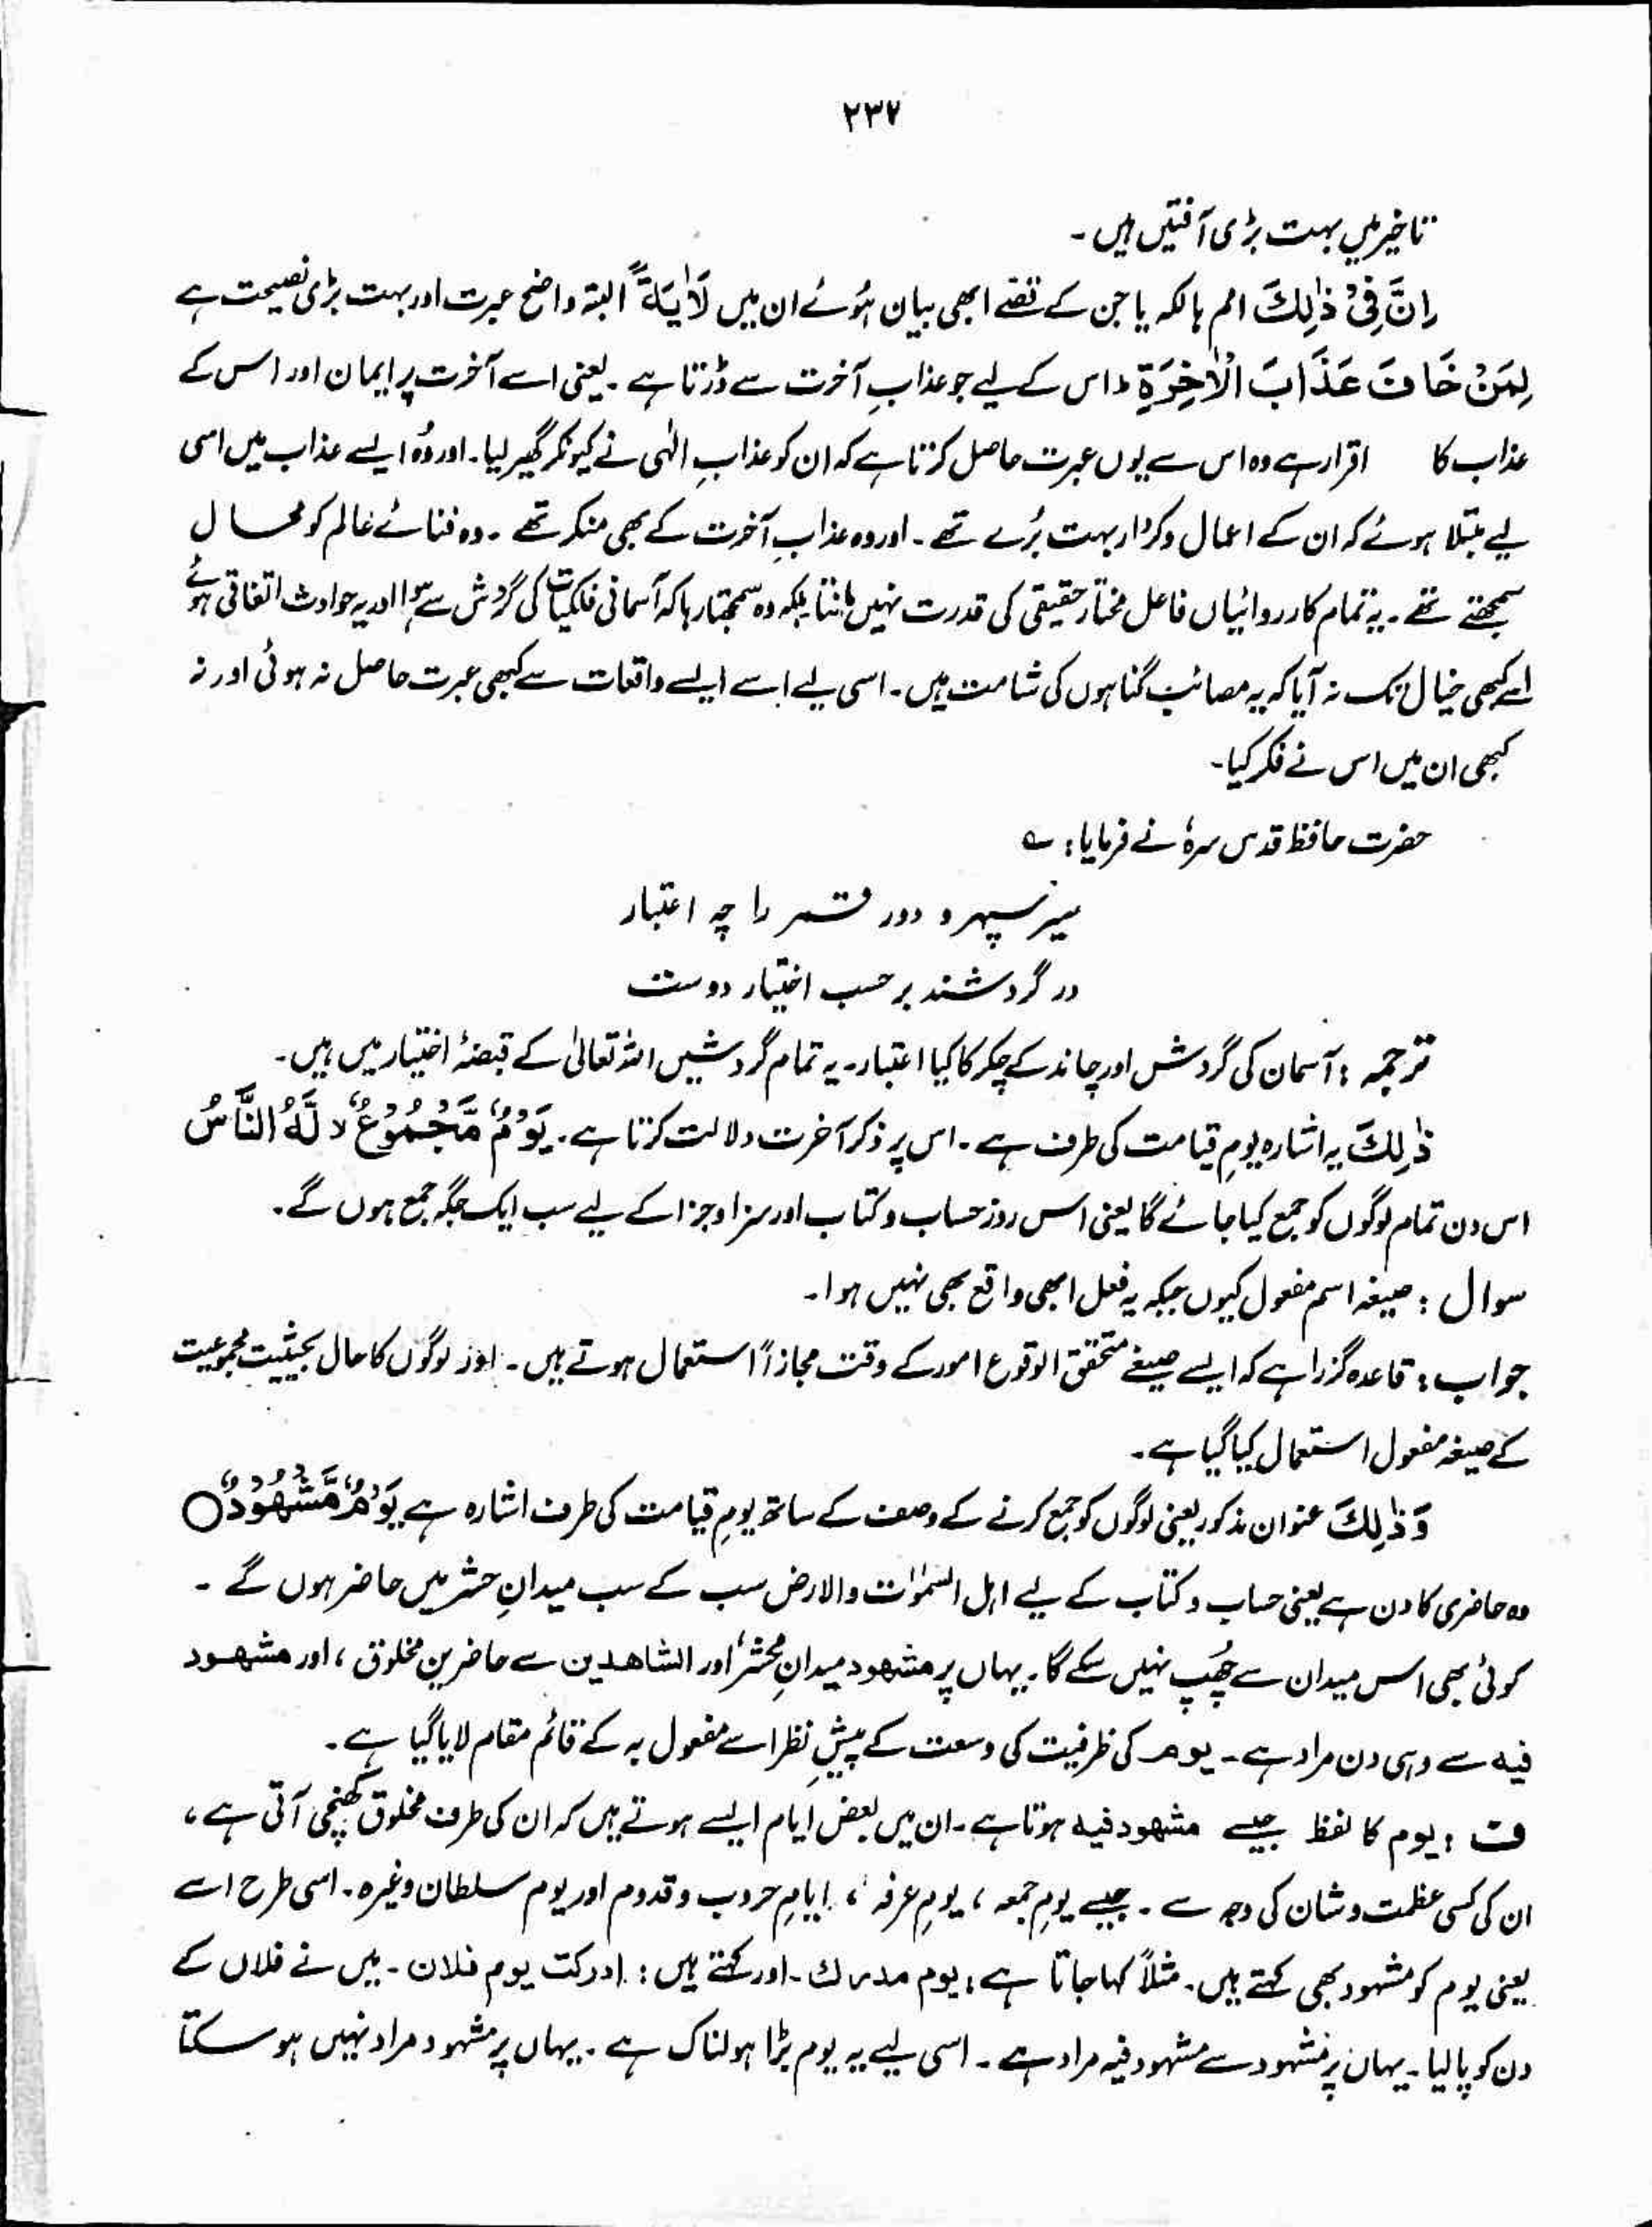 ۲۳۷
تاخیر میں بہت بڑی آفتیں ہیں۔
اِنَّ فِیْ ذٰلِكَ امم ہالکہ یا جن کے قصے ابھی بیان ہُوئے ان میں لَاٰیَةً البتہ واضح عبرت اور بہت بڑی نصیحت ہے
لِمَنْ خَافَ عَذَابَ الْاٰخِرَةِ ط اس کے لیے جو عذابِ آخرت سے ڈرتا ہے۔ یعنی اسے آخرت پر ایمان اور اس کے
عذاب کا اقرار ہے وہ اس سے یوں عبرت حاصل کرتا ہے کہ ان کو عذابِ الٰہی نے کیونکر گھیر لیا۔ اور وُہ ایسے عذاب میں اسی
لیے مبتلا ہوئے کہ ان کے اعمال و کردار بہت بُرے تھے۔ اور وہ عذابِ آخرت کے بھی منکر تھے۔ وہ فنائے عالم کو محال
سمجھتے تھے۔ یہ تمام کارروائیاں فاعل مختار حقیقی کی قدرت نہیں مانتا بلکہ وہ سمجھتا رہا کہ آسمانی فلکیات کی گردش سے ہوا اور یہ حوادث اتفاقی ہوئے
اسے کبھی خیال تک نہ آیا کہ یہ مصائب گناہوں کی شامت ہیں۔ اسی لیے اسے ایسے واقعات سے کبھی عبرت حاصل نہ ہوئی اور نہ
کبھی ان میں اس نے فکر کیا۔
حضرت حافظ قدس سرہٗ نے فرمایا: ؎
سیر سپہر و دور قمر را چہ اعتبار
در گردشند بر حسب اختیار دوست
ترجمہ: آسمان کی گردش اور چاند کے چکر کا کیا اعتبار۔ یہ تمام گردشیں اللہ تعالیٰ کے قبضۂ اختیار میں ہیں۔
ذٰلِكَ یہ اشارہ یومِ قیامت کی طرف ہے۔ اس پر ذکر آخرت دلالت کرتا ہے۔ یَوْمٌ مَّجْمُوْعٌ لا لَّهُ النَّاسُ
اس دن تمام لوگوں کو جمع کیا جائے گا یعنی اس روز حساب و کتاب اور سزا و جزا کے لیے سب ایک جگہ جمع ہوں گے۔
سوال: صیغہ اسم مفعول کیوں جبکہ یہ فعل ابھی واقع بھی نہیں ہوا۔
جواب: قاعدہ گزرا ہے کہ ایسے صیغے متحقق الوقوع امور کے وقت مجازاً استعمال ہوتے ہیں۔ اور لوگوں کا حال بحیثیت مجموعیت
کے صیغہ مفعول استعمال کیا گیا ہے۔
وَ ذٰلِكَ عنوان مذکور یعنی لوگوں کو جمع کرنے کے وصف کے ساتھ یومِ قیامت کی طرف اشارہ ہے یَوْمٌ مَّشْهُوْدٌ ○
وہ حاضری کا دن ہے یعنی حساب و کتاب کے لیے اہل السمٰوٰت والارض سب کے سب میدانِ حشر میں حاضر ہوں گے۔
کوئی بھی اس میدان سے چُھپ نہیں سکے گا۔ یہاں پر مشهود میدانِ محشر اور الشاهدین سے حاضرینِ مخلوق، اور مشهود
فیه سے وہی دن مراد ہے۔ یوم کی ظرفیت کی وسعت کے پیشِ نظر اسے مفعول بہ کے قائم مقام لایا گیا ہے۔
ف: یوم کا لفظ جیسے مشهود فیه ہوتا ہے۔ ان میں بعض ایام ایسے ہوتے ہیں کہ ان کی طرف مخلوق کھنچی آتی ہے،
ان کی کسی عظمت و شان کی وجہ سے۔ جیسے یومِ جمعہ، یومِ عرفہ، ایامِ حروب و قدوم اور یوم سلطان وغیرہ۔ اسی طرح اسے
یعنی یوم کو مشہود بھی کہتے ہیں۔ مثلاً کہا جاتا ہے: یوم مدرك۔ اور کہتے ہیں: ادرکت یوم فلان۔ میں نے فلاں کے
دن کو پا لیا۔ یہاں پر مشہود سے مشہود فیہ مراد ہے۔ اسی لیے یہ یوم بڑا ہولناک ہے۔ یہاں پر مشہود مراد نہیں ہو سکتا